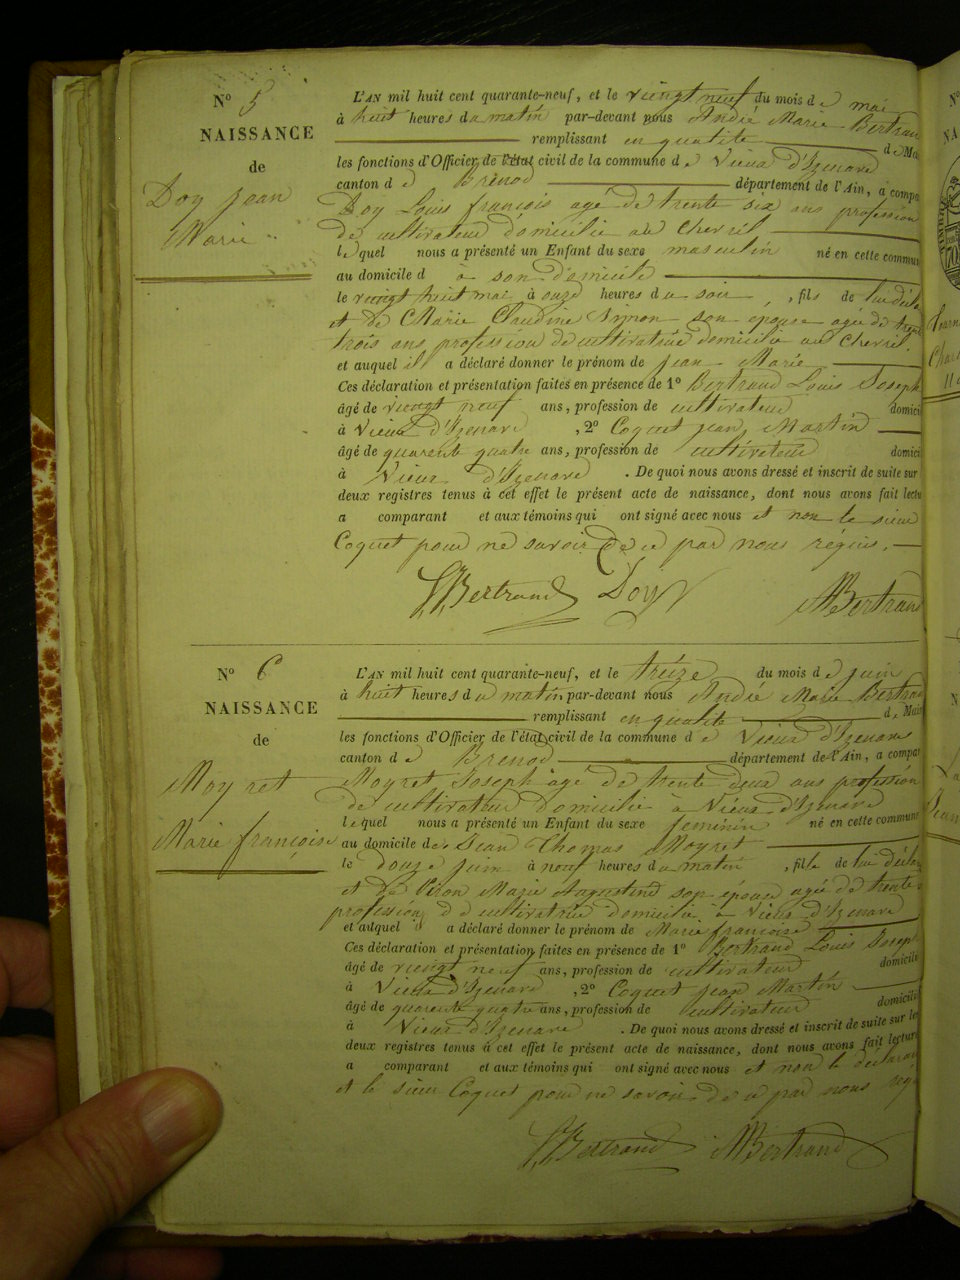 N° 5
NAISSANCE
de
Doy Jean
Marie
L'AN mil huit cent quarante-neuf, et le viengt neuf du mois d e mai
à huit heures du matin par-devant nous André Marie Bertran
remplissant en qualité de Mai
les fonctions d'Officier de l'état civil de la commune d e Vieux d'Izenave
canton d e Brenod département de l'Ain, a compa
Doy Louis françois agé de trente six ans profession
de cultivateur domicilié au Chevril
lequel nous a présenté un Enfant du sexe masculin né en cette commun
au domicile d à son domicile
le viengt huit mai à onze heures du soir, fils de lui décla
et de Marie Claudine son epouse agée de
trois ans profession de cultivatrice domicilié au Chevril.
et auquel il a déclaré donner le prénom de Jean Marie
Ces déclaration et présentation faites en présence de 1° Bertrand Louis Joseph
âgé de viengt neuf ans, profession de cultivateur domici
à Vieux d'Izenave, 2° Coquet jean Martin
âgé de quarente quatre ans, profession de cultivateur domici
à Vieux d'Izenave. De quoi nous avons dressé et inscrit de suite sur
deux registres tenus à cet effet le présent acte de naissance, dont nous avons fait lectu
a comparant et aux témoins qui ont signé avec nous et non le sieur
Coquet pour ne savoir de ce par nous réquis.
Bertrand Doy Bertrand
N° 6
NAISSANCE
de
Moyret
Marie françoise
L'AN mil huit cent quarante-neuf, et le treize du mois de juin
à huit heures du matin par-devant nous André Marie Bertran
remplissant en qualité de Mair
les fonctions d'Officier de l'état civil de la commune d e Vieux d'Izenave
canton d e Brenod département de l'Ain, a compar
Moyret Joseph agé de trente deux ans profession
de cultivateur domicilié à Vieux d'Izenave
lequel nous a présenté un Enfant du sexe feminin né en cette commune
au domicile de Jean Thomas Moyret
le douze juin à neuf heures du matin, fille de lui décla
et de Marie Augustine son épouse agée de trente
profession d e cultivatrice domicilié à Vieux d'Izenave
et auquel il a déclaré donner le prénom de Marie françoise
Ces déclaration et présentation faites en présence de 1° Bertrand Louis Josep
âgé de viengt neuf ans, profession de cultivateur domicilié
à Vieux d'Izenave, 2° Coquet jean Martin
âgé de quarente quatre ans, profession de cultivateur domicilié
à Vieux d'Izenave. De quoi nous avons dressé et inscrit de suite sur les
deux registres tenus à cet effet le présent acte de naissance, dont nous avons fait lecture
a comparant et aux témoins qui ont signé avec nous et non le déclaran
et le sieur Coquet pour ne savoir de ce par nous réq
Bertrand Bertrand